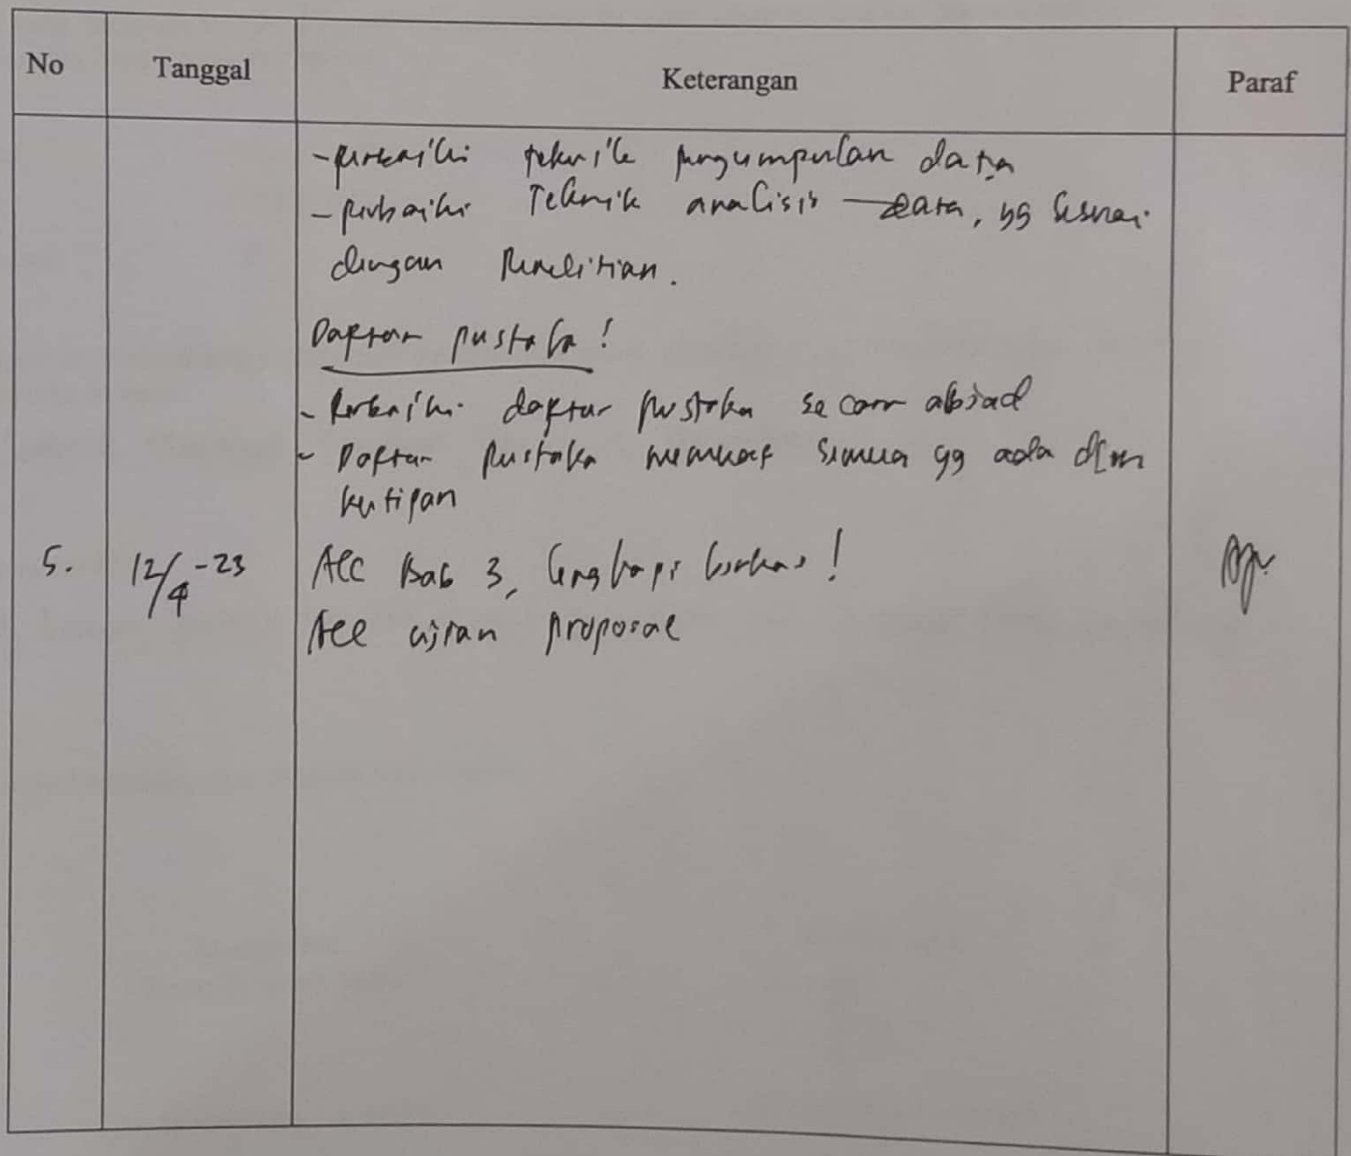 No Tanggal Keterangan Paraf
- perbaiki teknik pengumpulan data
- perbaiki Teknik analisis data, yg sesuai
dengan penelitian.
Daftar pustaka!
- Perbaiki daftar pustaka secara abjad
- Daftar pustaka memuat semua yg ada dlm
kutipan
5. 12/4-23 Acc Bab 3, lengkapi berkas!
Acc ujian proposal